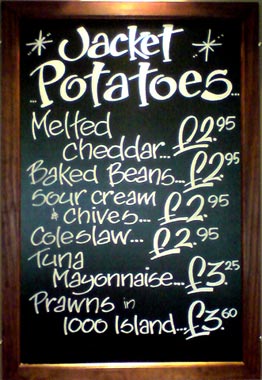 Jacket
Potatoes...
Melted
Cheddar... £2.95
Baked Beans... £2.95
Sour cream
& Chives... £2.95
Coleslaw... £2.95
Tuna
Mayonnaise... £3.25
Prawns in
1000 Island... £3.60